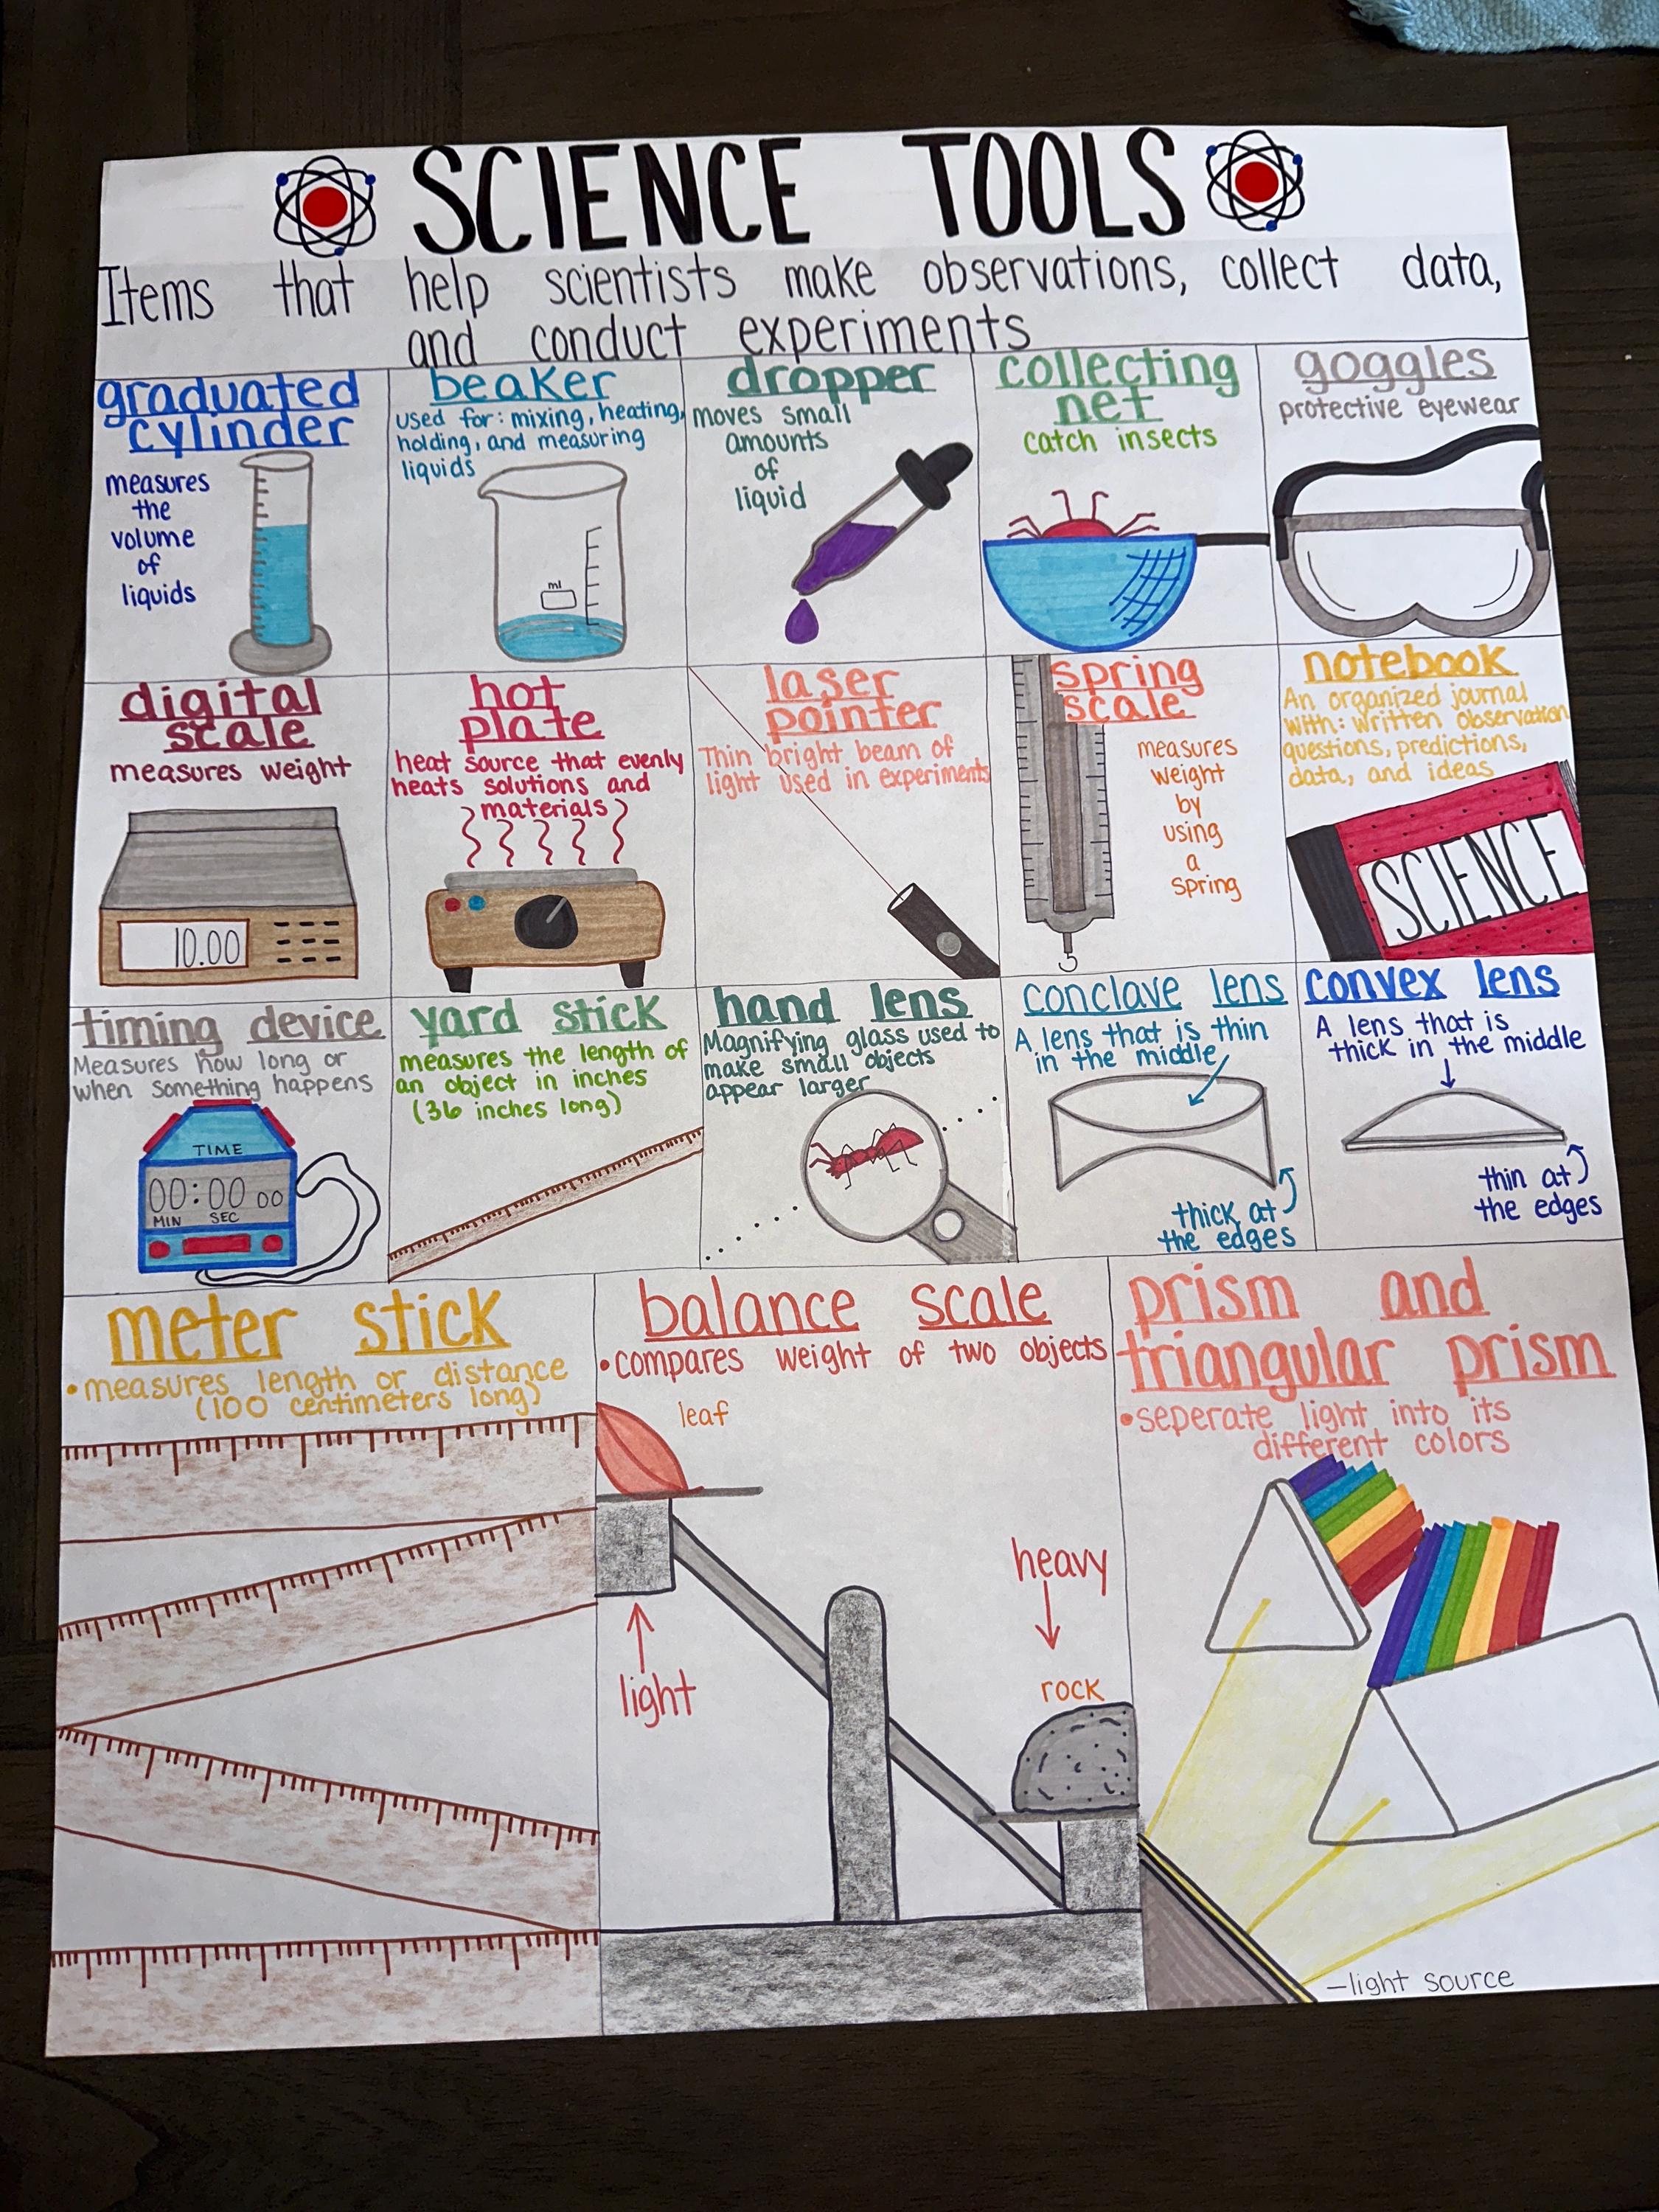 SCIENCE TOOLS
Items that help scientists make observations, collect data,
and conduct experiments
graduated
cylinder
measures
the
volume
of
liquids
beaker
used for: mixing, heating,
holding, and measuring
liquids
ml
dropper
moves small
amounts
of
liquid
collecting
net
catch insects
goggles
protective eyewear
digital
scale
measures weight
10.00
hot
plate
heat source that evenly
heats solutions and
materials
laser
pointer
Thin bright beam of
light used in experiments
spring
scale
measures
weight
by
using
a
spring
notebook
An organized journal
with: written observation
questions, predictions,
data, and ideas
SCIENCE
timing device
Measures how long or
when something happens
TIME
00:00 00
MIN SEC
yard stick
measures the length of
an object in inches
(36 inches long)
hand lens
Magnifying glass used to
make small objects
appear larger
conclave lens
A lens that is thin
in the middle
thick at
the edges
convex lens
A lens that is
thick in the middle
thin at
the edges
meter stick
•measures length or distance
(100 centimeters long)
balance scale
•compares weight of two objects
leaf
light
heavy
rock
prism and
triangular prism
•seperate light into its
different colors
–light source